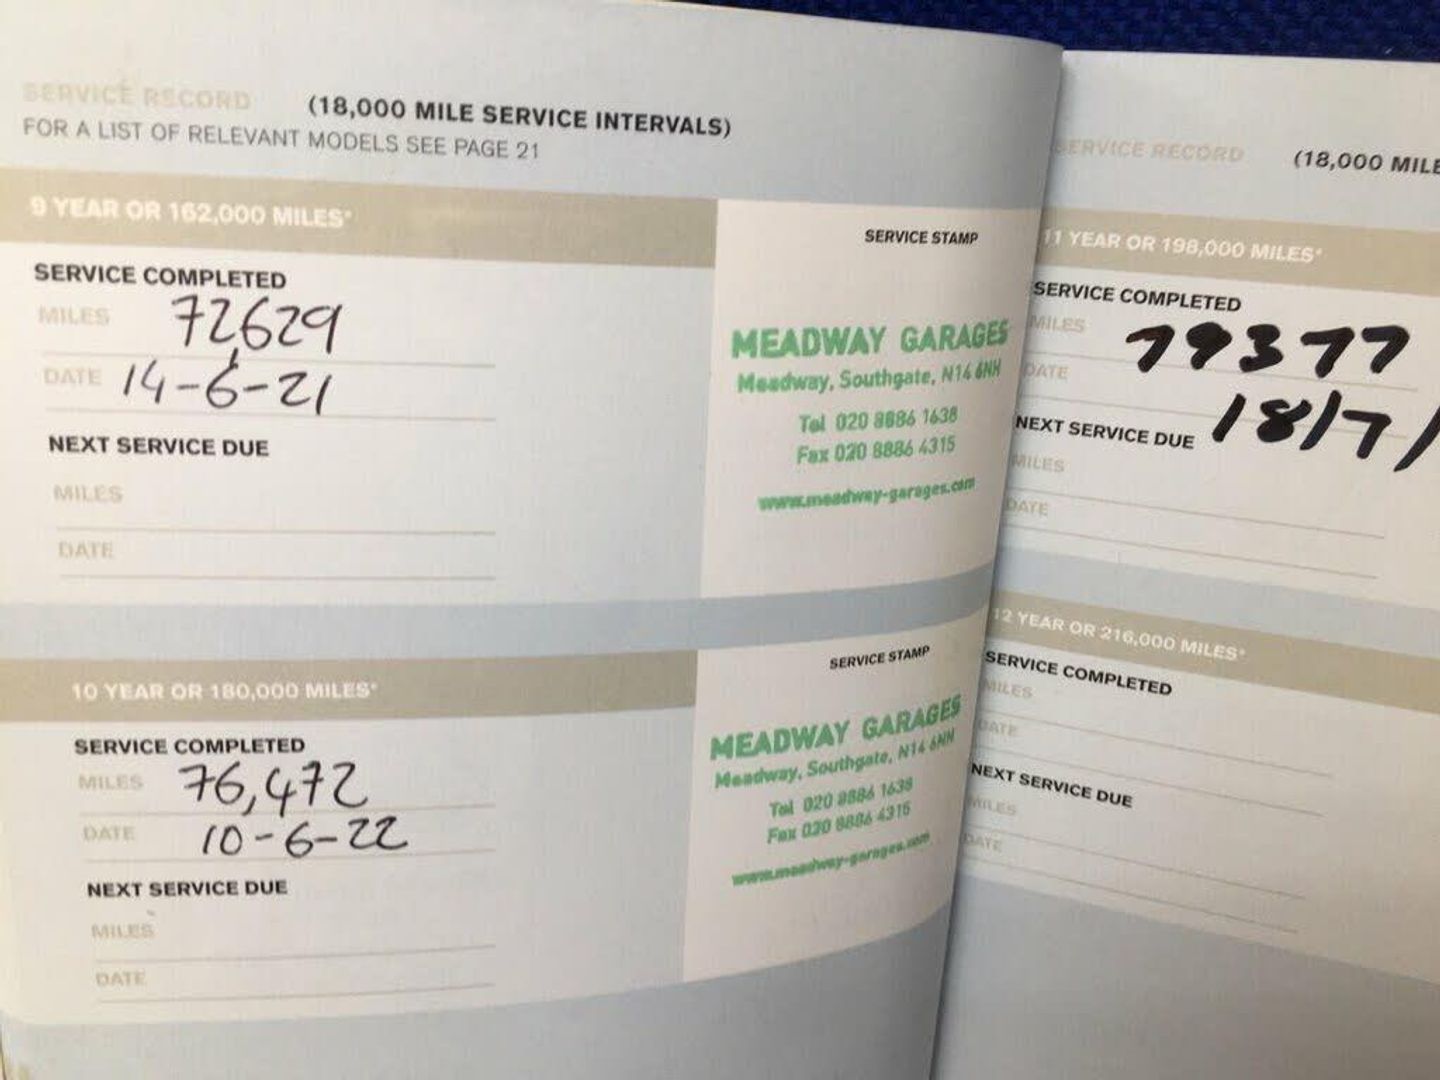 SERVICE RECORD (18,000 MILE SERVICE INTERVALS)
FOR A LIST OF RELEVANT MODELS SEE PAGE 21
9 YEAR OR 162,000 MILES*
SERVICE COMPLETED
MILES 72629
DATE 14-6-21
NEXT SERVICE DUE
MILES
DATE
SERVICE STAMP
MEADWAY GARAGES
Meadway, Southgate, N14 6NH
Tel 020 8886 1638
Fax 020 8886 4315
www.meadway-garages.com
10 YEAR OR 180,000 MILES*
SERVICE COMPLETED
MILES 76,472
DATE 10-6-22
NEXT SERVICE DUE
MILES
DATE
SERVICE STAMP
MEADWAY GARAGES
Meadway, Southgate, N14 6NH
Tel 020 8886 1638
Fax 020 8886 4315
www.meadway-garages.com
SERVICE RECORD (18,000 MILE
11 YEAR OR 198,000 MILES*
SERVICE COMPLETED
MILES 79377
DATE 18/7/
NEXT SERVICE DUE
MILES
DATE
12 YEAR OR 216,000 MILES*
SERVICE COMPLETED
MILES
DATE
NEXT SERVICE DUE
MILES
DATE